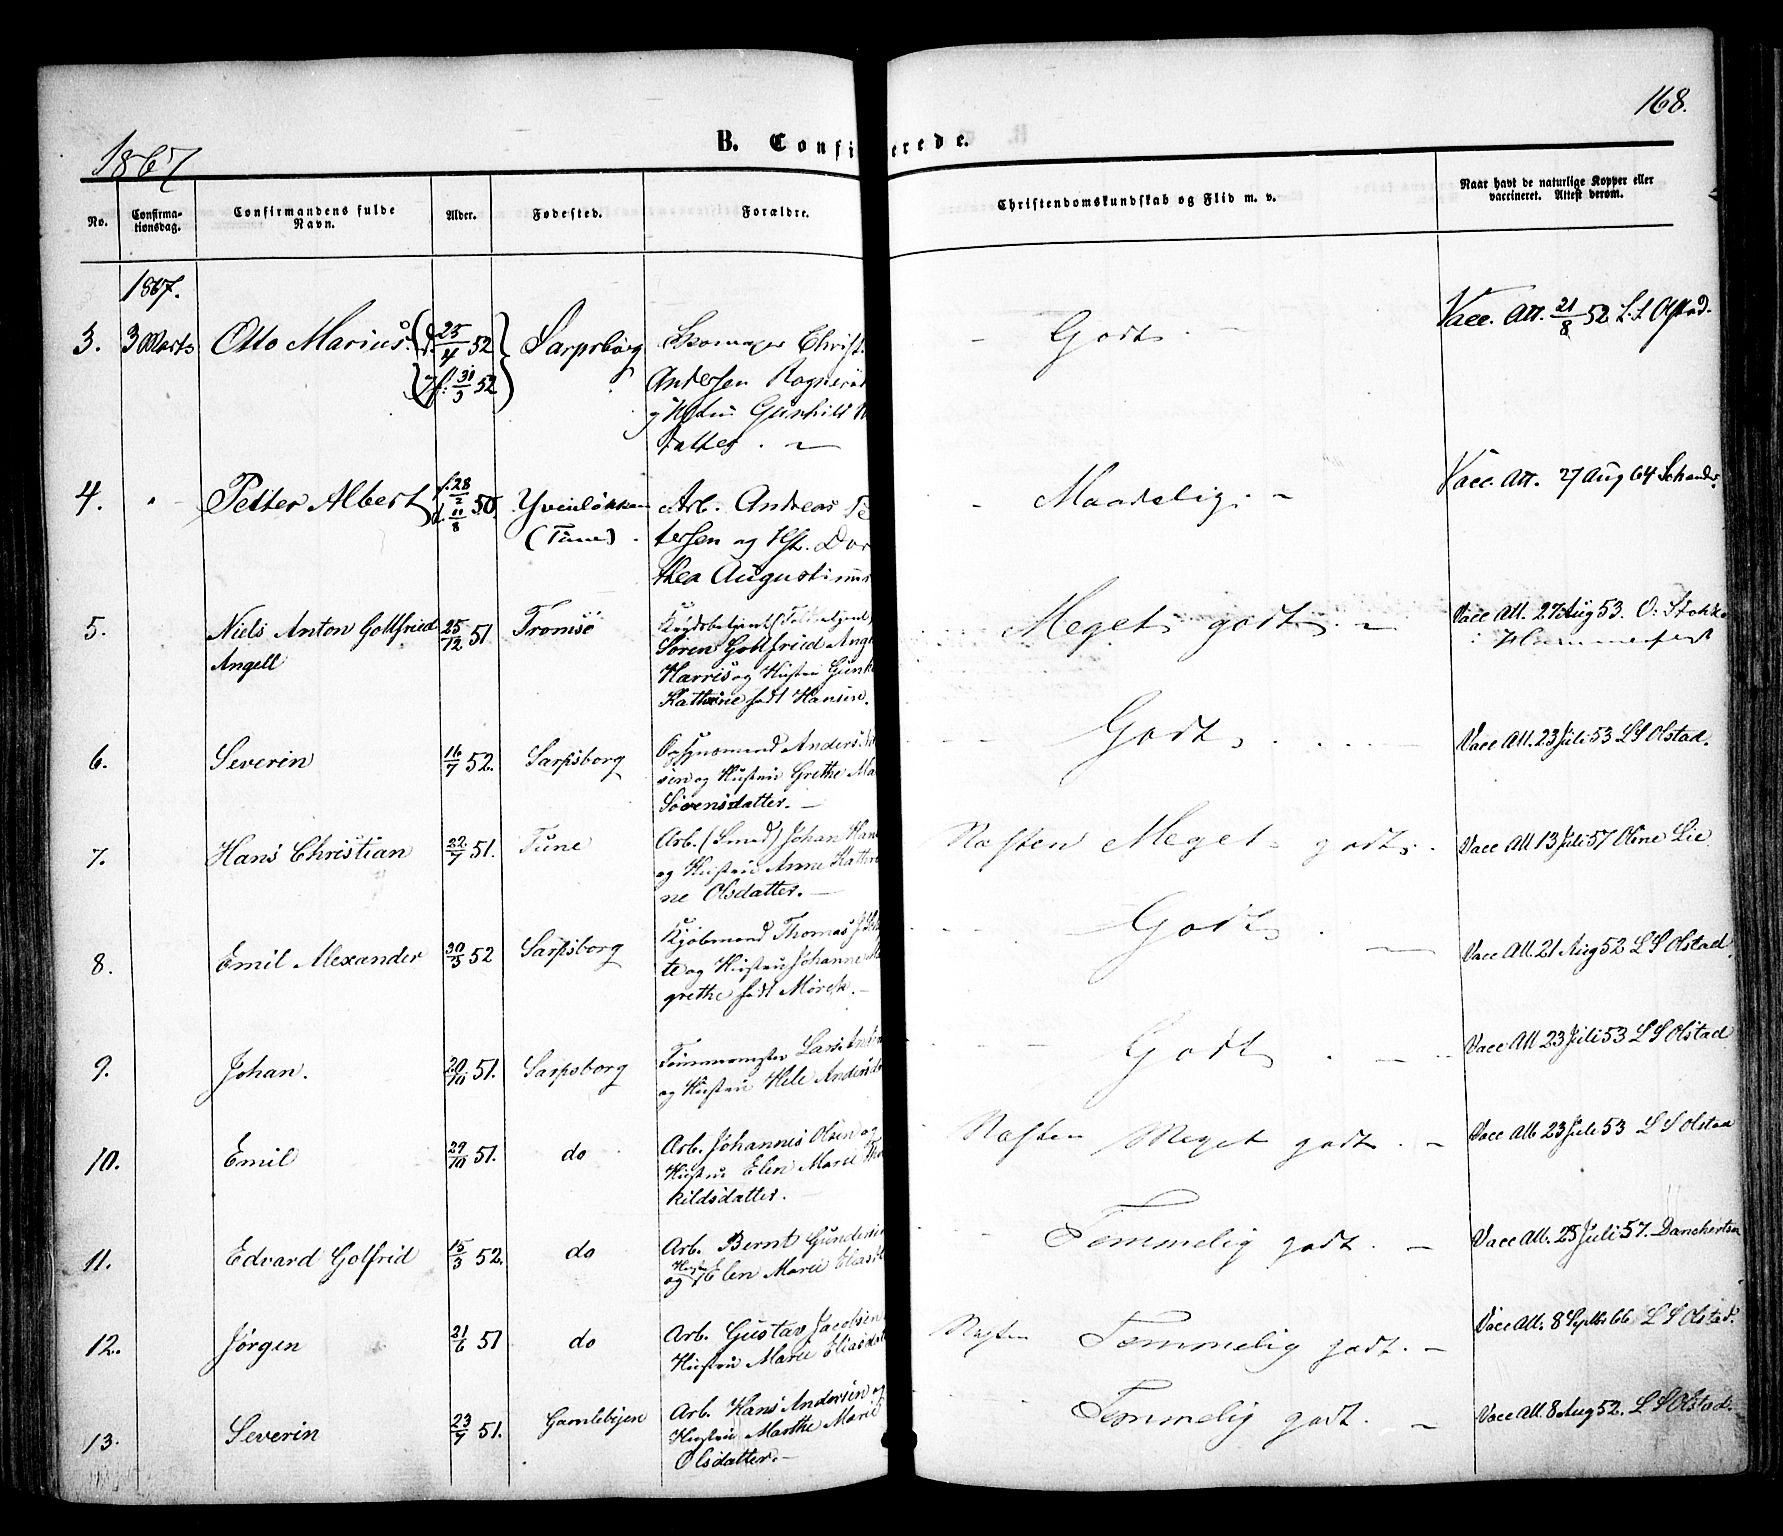 168.
1867
B. Confi erede.
No. Confirma-tionsdag. Confirmandens fulde Navn. Alder. Fødested. Forældre. Christendomskundskab og Flid m. v. Naar havt de naturlige Kopper eller vaccineret. Attest derom.
1867.
3. 3 Marts Otto Marius. (d. 25/4 52 Sarpsborg Skomager Christ. Godt. – Vacc. Att. 21/8 52 L. S. Olstad.
f: 31/3 52) Andersen
og Hstru Gunhild
datter. –
4. " Petter Albert f. 28/2 50. Arb. Andreas Pe Maadelig. – Vacc. Att. 27 Aug 64
d. 11/8 (Tune). tersen og Hst. Dor
thea Augustinus
5. Niels Anton Gottfried 25/12 51 Tromsö Meget godt. – Vacc Att. 27 Aug 53. O:
Angell Sören Gottfried Ang i Hammerfest
Harris og Hustru
Kathrine födt Hansen.
6. Severin 16/7 52. Sarpsborg Anders Godt. Vacc Att. 23 Juli 53 L S Olstad.
sen og Hustru Grethe Ma
Sörensdatter. –
7. Hans Christian 22/7 51. Tune Arb. (Smed) Johan Han Næsten Meget godt. Vacc Att 13 Juli 57 Oline Lie
og Hustru Anne Kathri
ne Olsdatter. –
8. Emil Alexander 30/3 52 Sarpsborg Kjöbmand Thomas Godt. – Vacc Att. 21 Aug 52 L S Olstad.
te og Hustru Johanne
grethe födt Mörch. –
9. Johan. 20/10 51. Sarpsborg Tömmermester Lars Godt. – Vacc Att 23 Juli 53 L S Olstad
og Hustru Anders
10. Emil 29/10 51. do Arb. Johannes Olsen og Næsten Meget godt. – Vacc Att. 23 Juli 53 L S Olstad
Hustru Elen Marie
kildsdatter. –
11. Edvard Golfrid 15/3 52. do Arb. Bernt Gundersen Temmelig godt. – Vacc Att. 25 Juli 57. Danchertsen
og Hustru Elen Marie Elias
12. Jörgen 21/6 51 do Arb. Gustav Jacobsen Næsten Temmelig godt. – Vacc Att. 8 Septbr 66 L S Olstad.
Hustru Marie Eliasdat
13. Severin 23/7 51. Gamlebyen Arb. Hans Andersen og Temmelig godt. – Vacc Att. 8 Aug 52. L S Olstad.
Hustru Marthe Marie
Olsdatter. –